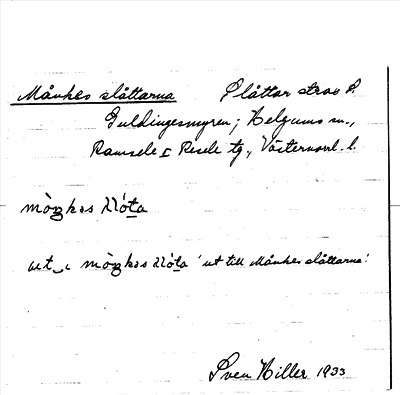 Månkes slåttarna Slåttar strax S.
Guldingesmyren; Helgums sn.,
Ramsele o Resele tg., Västernorrl. l.
ut i 'ut till Månkes slåttarna'.
Sven Hiller 1933